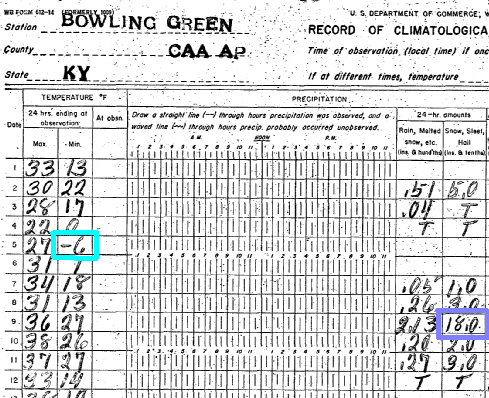 WB FORM 612-14 (FORMERLY 1009)
Station BOWLING GREEN
County CAA AP
State KY
U. S. DEPARTMENT OF COMMERCE, W
RECORD OF CLIMATOLOGICA
Time of observation (local time) if onc
If at different times, temperature
TEMPERATURE °F PRECIPITATION
24 hrs. ending at observation: At obsn. Draw a straight line (—) through hours precipitation was observed, and a 24-hr. amounts
waved line (~~) through hours precip. probably occurred unobserved.
Date Max. Min. A.M. NOON P.M. Rain, Melted snow, etc. (Ins. & hundths) Snow, Sleet, Hail (Ins. & tenths)
1 2 3 4 5 6 7 8 9 10 11 1 2 3 4 5 6 7 8 9 10 11
1 33 13
2 30 22 .51 5.0
3 28 17 .04 T
4 22 0 T T
5 27 -6
6 31
7 34 18 .05 1.0
8 31 13 .26 3.0
9 36 27 2.13 18.0
10 38 26 .20 2.0
11 37 27 .27 3.0
12 33 14 T T